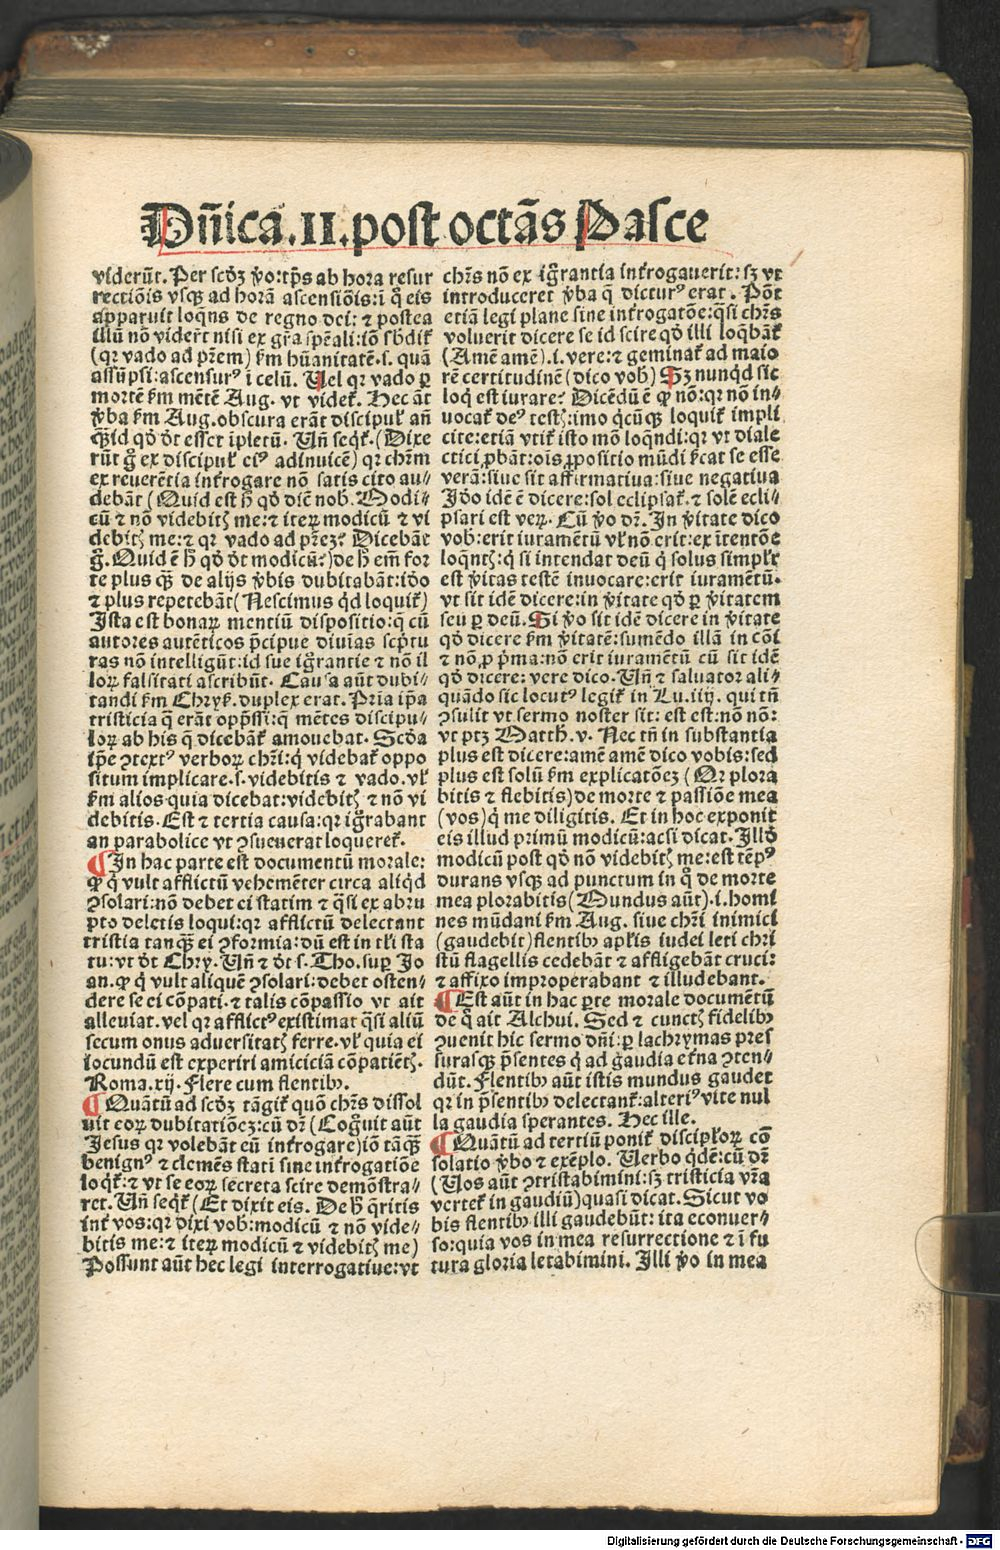 Dn̄ica. II. post octãs Pasce
viderũt. Per scḋꝫ v̇o: tp̃s ab hora resur
rectiõis vsqꝫ ad horã ascensiõis: ĩ q̊ eis
apparuit loqñs de regno dei: ⁊ postea
illũ nõ viderr̃t nisi ex gr̃a sp̃eali: iõ sḃdit̃
(qꝛ vado ad pr̃em) ẜm hũanitatẽ. s. quã
assũpsi: ascensurꝰ ĩ celũ. Uel qꝛ vado ꝑ
mortẽ ẜm mẽtẽ Aug. vt videt̃. Hec aũt
v̇ba ẜm Aug. obscura erãt discipul̃ añ
qꝫ̃ id qḋ ḋt esset ĩpletũ. Uñ seqt̃. (Dixe
rũt g̊ ex discipul̃ eiꝰ adinuicẽ) qꝛ chr̃m
ex reuerẽtia int̃rogare nõ satis cito au⸗
debãt (Quid est h̊ qḋ dic̃ nob̃. Modi⸗
cũ ⁊ nõ videbitꝭ me: ⁊ iteꝝ modicũ ⁊ vi
debitꝭ me: ⁊ qꝛ vado ad pr̃eꝫ? Dicebãt
g̊. Quid ẽ h̊ qḋ ḋt modicũ?) de h̊ em̃ for
te plus qꝫ̃ de alijs v̇bis dubitabãt: iḋo
⁊ plus repetebãt (Nescimus qḋ loquit̃)
Ista est bonaꝝ mentiũ dispositio: ꝙ cũ
autores autẽticos p̃cipue diuĩas scp̃tu
ras nõ intelligũt: id sue igr̃antie ⁊ nõ il
loꝝ falsitati ascribũt. Causa aũt dubi⸗
tandi ẜm Chryẜ. duplex erat. Pria ip̃a
tristicia q̃ erãt opp̃ssi: q̃ mẽtes discipu⸗
loꝝ ab his q̃ dicebãt̃ amouebat. Scḋa
ip̃e ꝯtextꝰ verboꝝ chr̃i: q̃ videbat̃ oppo
situm implicare. s. videbitis ⁊ vado. vl̃
ẜm alios quia dicebat: videbitꝭ ⁊ nõ vi
debitis. Est ⁊ tertia causa: qꝛ igr̃abant
an parabolice vt ꝯsueuerat loqueret̃.
¶ In hac parte est documentũ morale:
ꝙ q̇ vult afflictũ vehemẽter circa aliqḋ
ꝯsolari: nõ debet ei statim ⁊ q̃si ex abru
pto deletis loqui: qꝛ afflictũ delectant
tristia tanqꝫ̃ ei ꝯformia: dũ est in tl̃i sta
tu: vt ḋt Chry. Uñ ⁊ ḋt s. Tho. suꝑ Jo
an. ꝙ q̇ vult aliquẽ ꝯsolari: debet osten⸗
dere se ei cõpati. ⁊ talis cõpassio vt ait
alleuiat. vel qꝛ afflictꝰ existimat q̃si aliũ
secum onus aduersitatꝭ ferre. vl̃ quia ei
locundũ est experiri amiciciã cõpatiẽtꝭ.
Roma. xij. Flere cum flentibꝰ.
¶ Quãtũ ad scḋꝫ tãgit̃ quõ chr̃s dissol
uit eoꝝ dubitatiõeꝫ: cũ dr̃ (Cog̃uit aũt
Jesus qꝛ volebãt eũ int̃rogare) iõ tãqꝫ̃
benignꝰ ⁊ clemẽs stati sine int̃rogatiõe
loqt̃: ⁊ vt se eoꝝ secreta scire demõstra⸗
ret. Uñ seqt̃ (Et dixit eis. De h̊ q̃ritis
int̃ vos: qꝛ dixi vob̃: modicũ ⁊ nõ vide⸗
bitis me: ⁊ iteꝝ modicũ ⁊ videbitꝭ me)
Possunt aũt hec legi interrogatiue: vt
chr̃s nõ ex igr̃antia int̃rogauerit: sꝫ vt
introduceret v̇ba q̃ dicturꝰ erat. Põt
etiã legi plane sine int̃rogatõe: q̃si chr̃s
voluerit dicere se id scire qḋ illi loq̃bãt̃
(Amẽ amẽ). i. vere: ⁊ geminat̃ ad maio
rẽ certitudinẽ (dico vob̃) Sꝫ nunqd̃ sic
loq̇ est iurare? Dicẽdũ ẽ ꝙ nõ: qꝛ nõ in⸗
uocat̃ deꝰ testꝭ: imo q̇cũqꝫ loquit̃ impli
cite: etiã vtit̃ isto mõ loqñdi: qꝛ vt diale
ctici ꝓbãt: oĩs ꝓpositio mũdi ẜicat se esse
verã: siue sit affirmatiua: siue negatiua
Iḋo idẽ ẽ dicere: sol eclipsat̃. ⁊ solẽ ecli⸗
psari est veꝝ. Cũ v̇o dr̃. In v̇itate dico
vob̃: erit iuramẽtũ vl̃ nõ erit: ex ĩtentõe
loqñtꝭ: q̇ si intendat deũ q̇ solus simplr̃
est v̇itas testẽ inuocare: erit iuramẽtũ.
vt sit idẽ dicere: in v̇itate qḋ ꝑ v̇itatem
seu ꝑ deũ. Si v̇o sit idẽ dicere in v̇itate
qḋ dicere ẜm v̇itatẽ: sumẽdo illã in cõi
⁊ nõ ꝓ p̃ma: nõ erit iuramẽtũ cũ sit idẽ
qḋ dicere: vere dico. Uñ ⁊ saluator ali⸗
quãdo sic locutꝰ legit̃ in Lu. iiij. qui tñ
ꝯsulit vt sermo noster sit: est est: nõ nõ:
vt ptꝫ Matth. v. Nec tñ in substantia
plus est dicere: amẽ amẽ dico vobis: sed
plus est solũ ẜm explicatõeꝫ (Qꝛ plora
bitis ⁊ flebitis) de morte ⁊ passiõe mea
(vos) q̇ me diligitis. Et in hoc exponit
eis illud primũ modicũ: acsi dicat. Illḋ
modicũ post qḋ nõ videbitꝭ me: est tẽpꝰ
durans vsqꝫ ad punctum in q̊ de morte
mea plorabitis (Mundus aũt). i. homi
nes mũdani ẜm Aug. siue chr̃i inimici
(gaudebit) flentibꝰ apl̃is iudei leti chri
stũ flagellis cedebãt ⁊ affligebãt cruci:
⁊ affixo improperabant ⁊ illudebant.
¶ Est aũt in hac ꝑte morale documẽtũ
de q̊ ait Alchui. Sed ⁊ cunctꝭ fidelibꝰ
ꝯuenit hic sermo dñi: ꝑ lachrymas pres
surasqꝫ p̃sentes q̇ ad gaudia et̃na ꝯten⸗
dũt. Flentibꝰ aũt istis mundus gaudet
qꝛ in p̃sentibꝰ delectant̃: alteriꝰ vite nul
la gaudia sperantes. Hec ille.
¶ Quãtũ ad tertiũ ponit̃ discipl̃oꝝ cõ
solatio v̇bo ⁊ exẽplo. Uerbo qdẽ: cũ dr̃
(Uos aũt ꝯtristabimini: sꝫ tristicia vr̃a
vertet̃ in gaudiũ) quasi dicat. Sicut vo
bis flentibꝰ illi gaudebũt: ita econuer⸗
so: quia vos in mea resurrectione ⁊ ĩ fu
tura gloria letabimini. Illi v̇o in mea
Digitalisierung gefördert durch die Deutsche Forschungsgemeinschaft - DFG